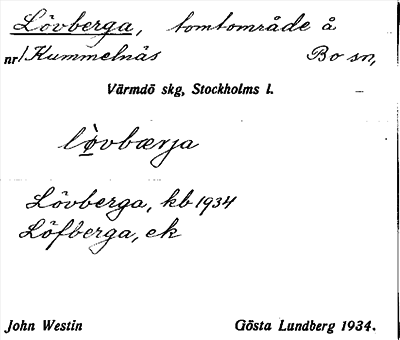 Lövberga, tomtområde å
nr 1 Kummelnäs Bo sn,
Värmdö skg, Stockholms l.
lòvbærja
Lövberga, kb 1934
Löfberga, ek
John Westin Gösta Lundberg 1934.